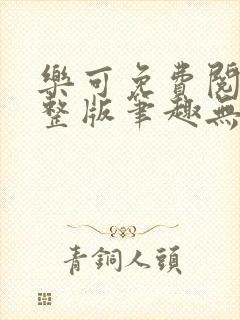 樂可免費閱
整版筆趣無
青銅人頭